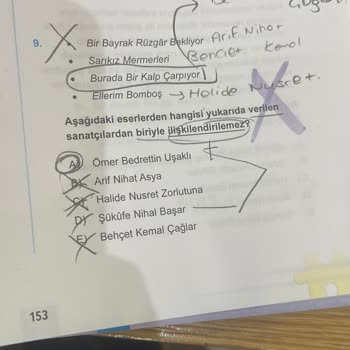 9.
Bir Bayrak Rüzgâr Bekliyor Arif Nihat
• Sarıkız Mermerleri Behçet Kemal
• Burada Bir Kalp Çarpıyor
• Ellerim Bomboş → Halide Nusret.
Aşağıdaki eserlerden hangisi yukarıda verilen
sanatçılardan biriyle ilişkilendirilemez?
A) Ömer Bedrettin Uşaklı
B) Arif Nihat Asya
C) Halide Nusret Zorlutuna
D) Şükûfe Nihal Başar
E) Behçet Kemal Çağlar
153